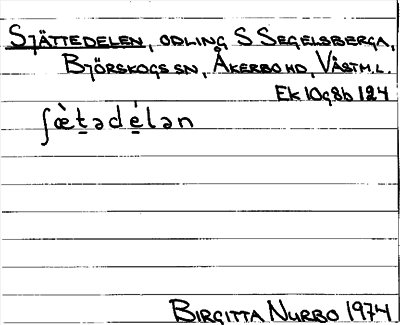 SJÄTTEDELEN, ODLING S SEGELSBERGA,
BJÖRSKOGS SN, ÅKERBO HD, VÄSTM.L.
EK 10g8b 124
ʃœ̀t̠ədé̠lən
BIRGITTA NURBO 1974